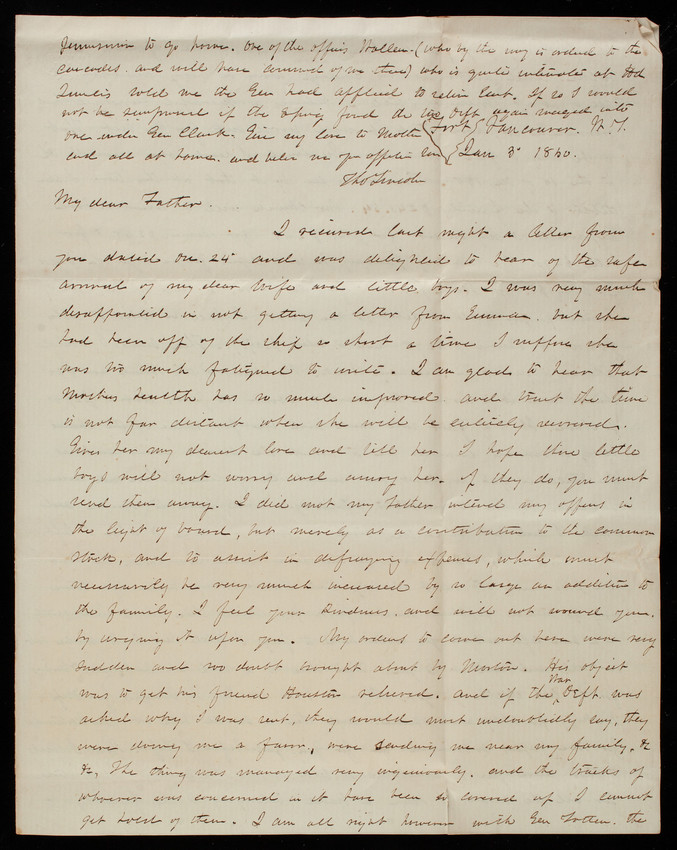 permission to go home. One of the officers Wallen (who by the way is ordered to the
Cascades. and will have command of me there) who is quite intimate at Hd
Quarters told me the Gen had applied to retire Cart. If so I would
not be surprised if the spring found the two Depts again merged into
one under Gen Clark. Give my love to Mother
and all at home. and believe me yr affte Son
Thos Lincoln
Fort Vancouver. W. T.
Jan 3d 1860.
My dear Father.
I received last night a letter from
you dated Dec. 24th and was delighted to hear of the safe
arrival of my dear Wife and little boys. I was very much
disappointed in not getting a letter from Emma. but she
had been off of the ship so short a time I suppose she
was too much fatigued to write. I am glad to hear that
Mothers health has so much improved and trust the time
is not far distant when she will be entirely recovered.
Give her my dearest love and tell her I hope those little
boys will not worry and annoy her. If they do, you must
send them away. I did not my Father intend my offers in
the light of board, but merely as a contribution to the common
stock, and to assist in defraying expenses, which must
necessarily be very much increased by so large an addition to
the family. I feel your kindness. and will not wound you.
by urging it upon you. My orders to come out here were very
sudden and no doubt brought about by Newton. His object
was to get his friend Houston relieved. and if the War Deptt was
asked why I was sent, they would most undoubtedly say, they
were doing me a favor, were sending me near my family, &
&c, The thing was managed very ingeniously. and the tracks of
whoever was concerned in it have been so covered up I cannot
get hold of them. I am all right however with Gen Totten. the